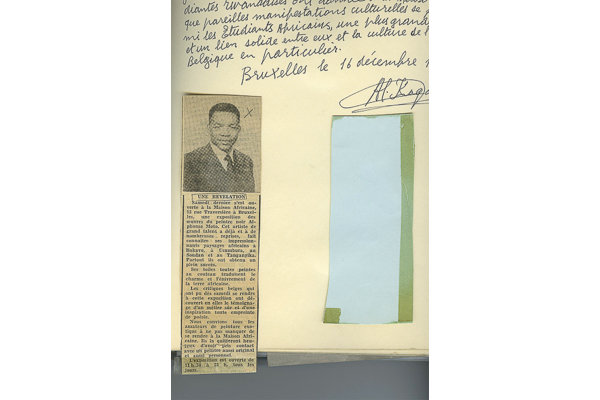 diantes rwandaises
que pareilles manifestations culturelles se
mi les Etudiants Africains, une plus grande
et un lien solide entre eux et la culture de l'
Belgique en particulier.
Bruxelles le 16 décembre
UNE REVELATION
Samedi dernier s'est ou-
verte à la Maison Africaine,
33 rue Traversière à Bruxel-
les, une exposition des
œuvres du peintre noir Al-
phonse Moto. Cet artiste de
grand talent a déjà et à de
nombreuses reprises, fait
connaître ses impression-
nants paysages africains à
Bukavu, à Usumbura, au
Soudan et au Tanganyika.
Partout ils ont obtenu un
plein succès.
Ses toiles toutes peintes
au couteau traduisent le
charme et l'énivrement de
la terre africaine.
Les critiques belges qui
ont pu dès samedi se rendre
à cette exposition ont dé-
couvert en elles le témoigna-
ge d'un métier sûr et d'une
inspiration toute empreinte
de poésie.
Nous convions tous les
amateurs de peinture exo-
tique à ne pas manquer de
se rendre à la Maison Afri-
caine. Ils la quitteront heu-
reux d'avoir pris contact
avec un peintre aussi original
et aussi personnel.
L'exposition est ouverte de
à h. tous les
jours.